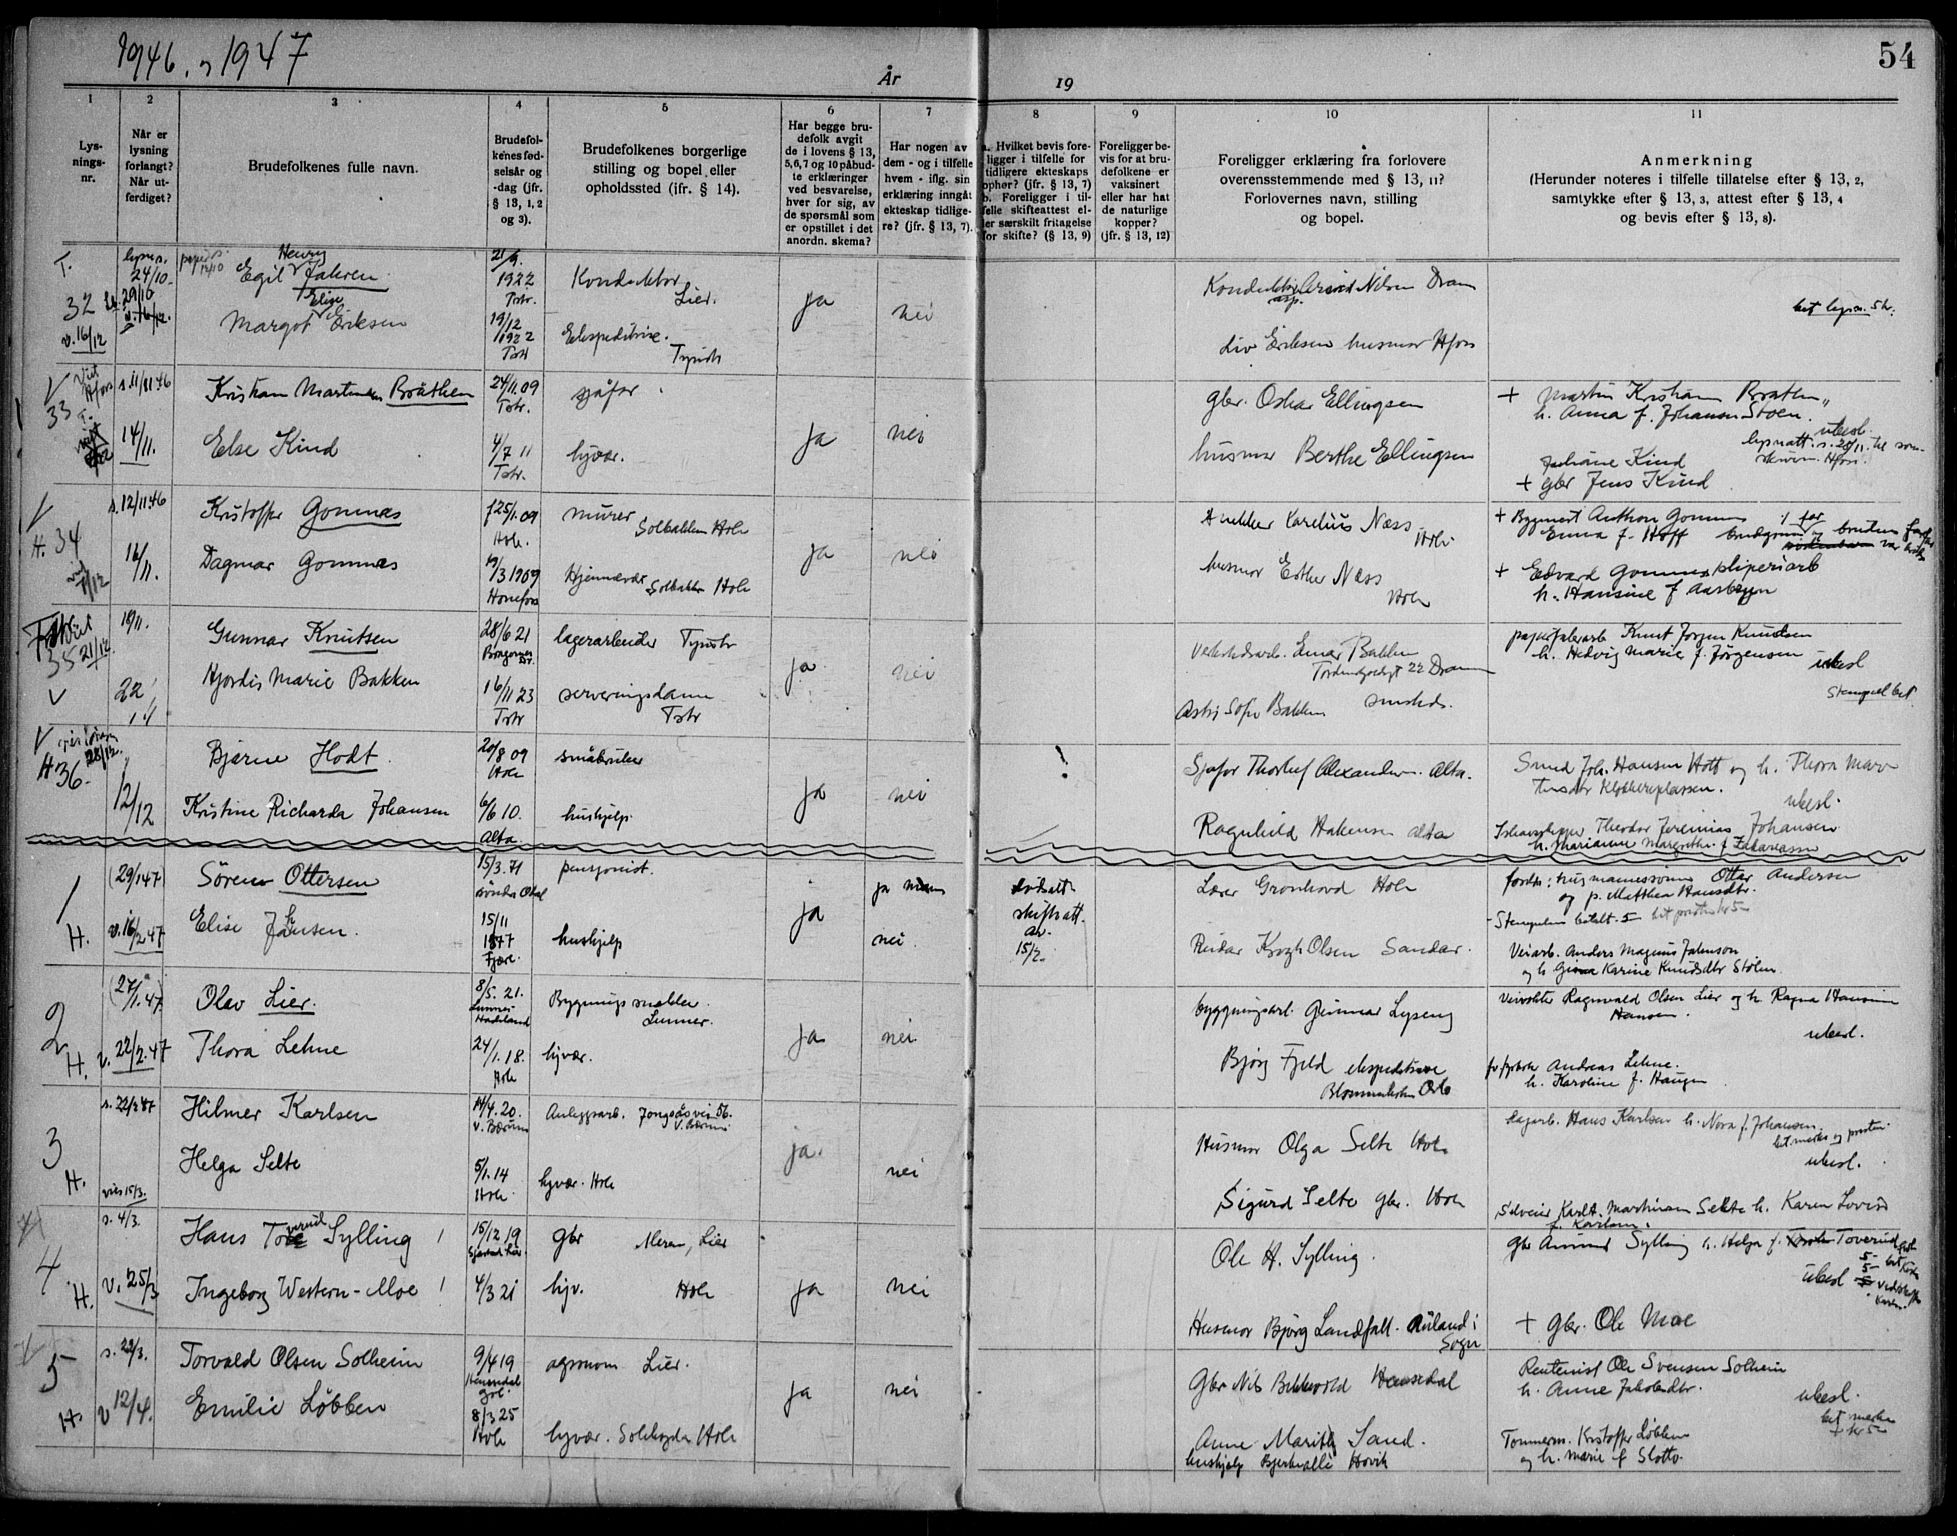 1946 . 1947
År
19
54
1
2
3
4
5
6
7
8
9
10
11
Lys-
nings-
nr.
Når er
lysning
forlangt?
Når ut-
ferdiget?
Brudefolkenes fulle navn.
Brudefol-
kenes fød-
selsår og
-dag (jfr.
§ 13, 1, 2
og 3).
Brudefolkenes borgerlige
stilling og bopel eller
opholdssted (jfr. § 14).
Har begge bru-
defolk avgit
de i lovens § 13,
5,6,7 og 10 påbud-
te erklæringer
ved besvarelse,
hver for sig, av
de spørsmål som
er opstillet i det
anordn. skema?
Har nogen av
dem - og i tilfelle
hvem - iflg. sin
erklæring inngåt
ekteskap tidlige-
re? (jfr. § 13, 7).
a. Hvilket bevis fore-
ligger i tilfelle for
tidligere ekteskaps
ophør? (jfr. § 13, 7)
b. Foreligger i til-
felle skifteattest el-
ler særskilt fritagelse
for skifte? (§ 13, 9)
Foreligger be-
vis for at bru-
defolkene er
vaksinert
eller har hat
de naturlige
kopper?
(jfr. § 13, 12)
Foreligger erklæring fra forlovere
overensstemmende med § 13, 11?
Forlovernes navn, stilling
og bopel.
Anmerkning
(Herunder noteres i tilfelle tillatelse efter § 13, 2,
samtykke efter § 13, 3, attest efter § 13, 4
og bevis efter § 13, 8).
T.
32
v. 16/12
24/10
Henry
Egil Jahren
Elise
Margot Eriksen
21/9.
1922
Tstr.
19/12
1922
Tstr
Konduktør
Lier.
Ekspeditrise.
Tyristr
ja
nei
Arvid Nilsen Dram
Liv Eriksen husmor Hfoss
bet lysn. 5 kr.
V
33
T.
s. 11/11 46
14/11.
Kristian Martinsen Bråthen
Else Kind
24/11.09
Tstr.
4/7 11
Tstr.
sjåfør
hjvær.
ja
nei
gbr. Oskar Ellingsen
husmor Berthe Ellingsen
+ Martin Kristian Braathen
h. Anna f. Johansen Stoen.
ubesl.
Juliane Kind
+ gbr Jens Kind
V
H. 34
s. 12/11 46
16/11.
Kristoffer Gomnæs
Dagmar Gomnæs
f 25/1.09
Hole.
19/3 1909
Hønefoss
murer
Solbakken Hole
Hjemmevær
Solbakken Hole
ja
nei
Snekker Karelius Næss
Hole
husmor Esther Næss
Hole
+ Bygmest Anthon Gomnæs
Emma f. Hoff
+ Edvard Gomnæs sliperiarb
h. Hansine f Aasbyen
35 21/12
V
19/11.
22/11
Gunnar Knutsen
Hjørdis Marie Bakken
28/6 21
Bragernes
Dr.
16/11 23
Tstr
lagerarbeider Tyristr
serveringsdame
Tstr
ja
nei
Verkstedsarb. Einar Bakken
22 Dram
Astrj Sofie Bakken
smsteds.
papirfabrarb Knut Jørgen Knudsen
h. Hedvig Marie f. Jørgensen
ubesl
Stempel bet
V
28/12.
H. 36.
12/12
Bjarne Hodt
Kristine Richarda Johansen
20/8 09
Hole
6/6 10.
Alta.
småbruker
hushjelp
ja
nei
!
Sjåfør Thorleif Alexandersen. Alta.
Ragnhild Hakensen Alta
Smed Joh. Hansen Hott og h. Thora Mar
tinsdtr Klokkerplassen.
ubesl.
Ishavsskipper Theodor Jeremias Johansen
h. Marianne Margrethe f Zakariassen
1
H.
(29/1 47)
v. 16/2 47
Søren Ottersen
Elise Johansen.
15/3.71
Søndre Odal
15/11
1877
Fjære.
pensjonist.
hushjelp
ja
ja mann
nei.
skifteatt.
av.
15/2.
Lærer Grønhovd Hole
Reidar Krogh Olsen Sandar.
foreldre: husmannssønn Otter Andersen
og p. Matthea Hansdtr.
- Stempelen betalt. 5
Veiarb. Anders Magnus Johnson
og h Gina Karine Knudsdtr Stølen.
2
H.
(27/1.47)
v. 22/2.47
Olav Lier.
Thora Lehne
8/5. 21.
Lunner
Hadeland
24/1.18.
Hole
Bygningssnekker.
Lunner.
hjvær.
ja
nei
bygningsarb. Gunnar Lyseng
Bjørg Fjeld ekspeditrise
Blommenholm Oslo
Veivokter Ragnvald Olsen Lier og h Ragna Hansine
Hansen.
ubesl.
Andreas Lehne.
h. Karoline f. Haugen
3
H.
s. 22/2 47
vies 15/3.
Hilmer Karlsen
Helga Selte
14/4.20.
V. Bærum
5/1.14
Hole
Anleggsarb. Jongsåsvei 56.
V. Bærum
hjvær. Hole
ja.
nei
Husmor Olga Selte Hole
Sigurd Selte gbr. Hole
Lagerb. Hans Karlsen h. Nora f. Johansen
ubesl.
Karl A. Martinsen Selte h. Karen Lovise
f. Karlsen.
4
H.
s. 4/3.
v. 25/3
Hans Toverud Sylling
Ingeborg Western-Moe
15/12 19
4/3 21
gbr
Meren, Lier
hjv.
Hole
ja
nei
Ole H. Sylling.
Husmor Bjørg Landfall. Aurland i
Sogn
gbr Amund Sylling h. Helga f. Toverud
ubesl
+ gbr. Ole Moe
5
H.
s. 22/3.
v 12/4.
Torvald Olsen Solheim
Emilie Løbben
9/4 19
Hemsedal
gol.
8/3 25
Hole
agronom Lier.
hjvær. Solhøgda Hole
ja
nei
Gbr Nils Bekkevold Hemsedal
Anne Marith Sand.
hushjelp Bjerkealle Høvik
Rentenist Ole Svensen Solheim
h. Anne Jakobsdtr.
ubesl.
Tømmerm. Kristoffer Løbben
og h. Marie f Slotto.